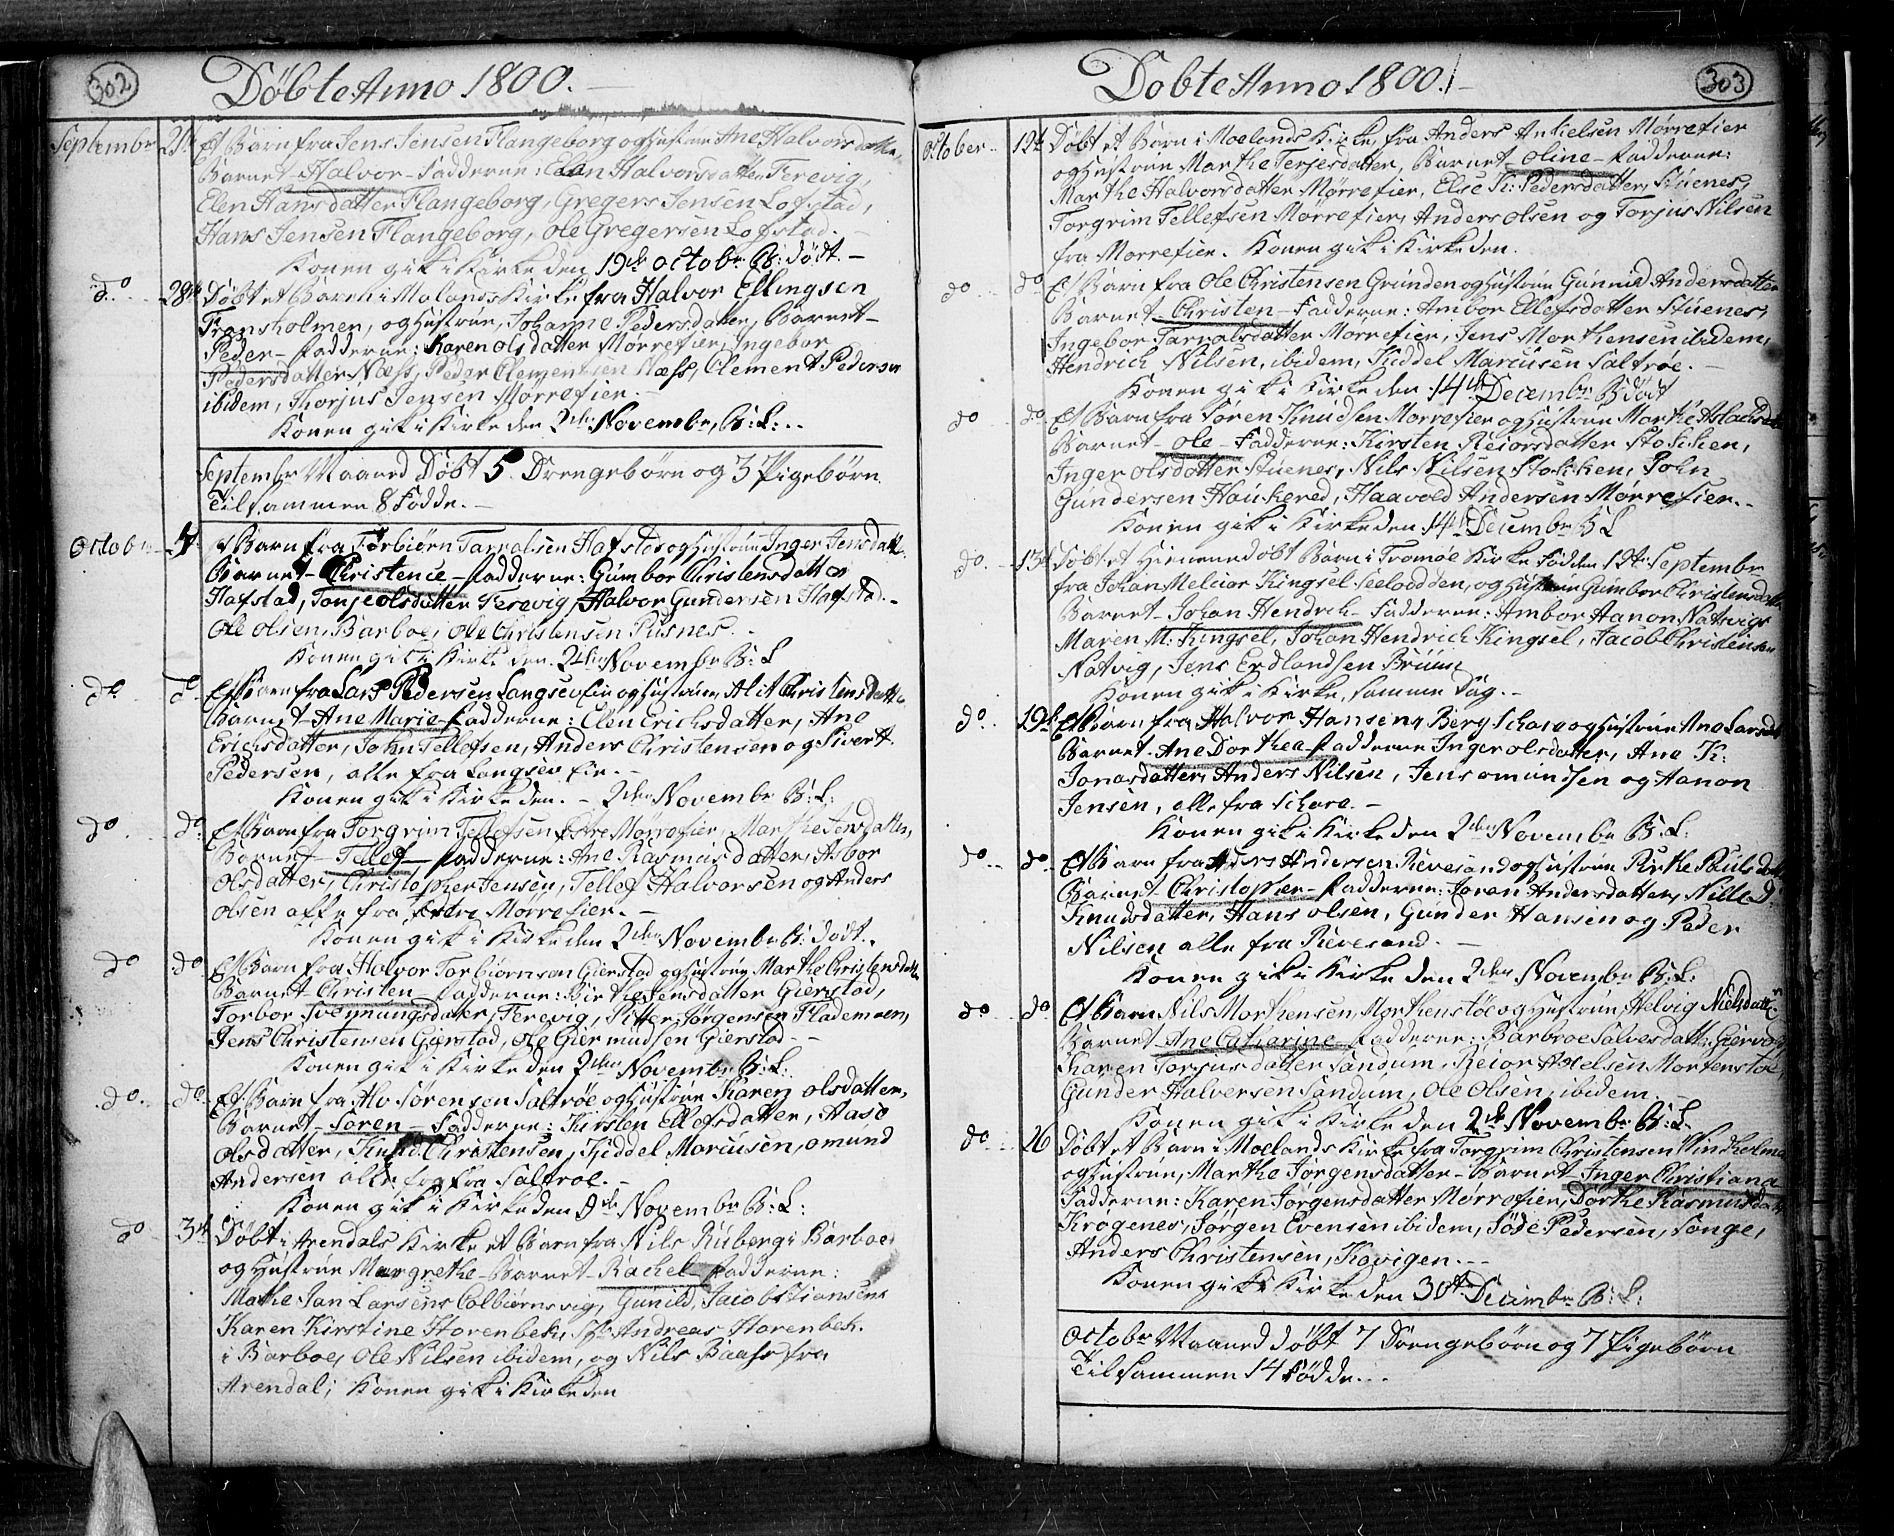 302
Døbte Anno 1800.
September 21de Et Barn fra Jens Jensen Flangeborg og Hustrue Ane Halvorsdatter,
Barnet - Halvor - Fadderne: Elen Halvorsdatter Ferevig,
Elen Hansdatter Flangeborg, Gregers Jensen Lofstad,
Hans Jensen Flangeborg, Ole Gregersen Lofstad. -
Konen gik i Kirke den 19de octobr B: dødt. -
do 28de Døbt et Barn i Molands Kirke fra Halvor Ellingsen
Fransholmen, og Hustrue, Johanne Pedersdatter, Barnet -
Peder - Fadderne: Karen olsdatter Mørrefier, Ingebor
Pedersdatter Næss, Peder Clementsen Næss, Clement Pedersen
ibidem, Thorjus Jensen Mørrefier. -
Konen gik i Kirke den 2den Novembr, B: L: -
Septembr Maaned Døbt 5 Drengebørn og 3 Pigebørn
Tilsammen 8 Fødde. -
Octobr. 4. Et Barn fra Torbiørn Tarralsen Hafstad og Hustrue Inger Jensdatt:
Barnet - Christence - Fadderne: Gumbor Christensdatter
Hafstad, Tonje olsdatter Ferevig, Halvor Gundersen Hafstad. -
Ole Olsen, Barboe, Ole Christensen Pusnes. -
Konen gik i Kirke den 2den Novembr B: L
do do Et Barn fra Lars Pedersen Langsev Eie og Hustrue, Alit Christensdatter
Barnet - Ane Marie - Fadderne: Elen Erichsdatter, Ane
Erichsdatter, John Tellefsen, Anders Christensen og Sivert
Pedersen, alle fra Langsev Eie. -
Konen gik i Kirke den. - 2den Novembr B: L:
do do Et Barn fra Torgrim Tellefsen Østre Mørrefier, Marthe Jensdatter,
Barnet - Tellef - Fadderne: Ane Rasmusdatter, Asbor
Olsdatter, Christopher Jensen, Tellef Halvorsen og Anders
Olsen alle fra Østre Mørrefier. -
Konen gik i Kirke den 2den Novembr B: dødt.
do do Et Barn fra Halvor Torbiørnsen Gierstad og Hustrue Marthe Christensdatter
Barnet - Christen - Fadderne: Birthe Jensdatter Gierstad,
Torbor Svennungsdater, Ferevig, Pitter Jørgensen Flademoen,
Jens Christensen Gierstad, Ole Giermundsen Gierstad. -
Konen gik i Kirke den 2den Novembr B: L:
do. do. Et Barn fra Alv Sørensen Saltrøe og Hustrue Karen Olsdatter,
Barnet - Søren - Fadderne: Kirsten Ellefsdatter, Aase
Olsdatter, Knud Christensen, Kiddel Marcusen, omund
Andersen alle fra Saltrøe. -
Konen gik i Kirke den 9de Novembr B: L:
do 3de Døbt i Arendals Kirke et Barn fra Nils Ruberg i Barboe
og Hustrue Margrethe - Barnet - Rachel - Fadderne:
Mathe Jan Larsens Colbiørnsvig, Gunild, Jacob Tiansens
Karen Kirstine Horenbek, Andreas Horenbek.
i Barboe, Ole Nilsen ibidem, og Nils Baass fra
Arendal; Konen gik i Kirke den
303
Døbte Anno 1800.
October 12te Døbt et Barn i Moelands Kirke fra Anders Ankielsen Mørrefier
og Hustrue Marthe Terjesdatter, Barnet - Oline - Fadderne:
Marthe Halvorsdatter Mørrefier, Else K: Pedersdatter, Stuenes,
Torgrim Tellefsen Mørrefier, Anders Olsen og Torjus Nilsen
fra Mørrefier. Konen gik i Kirke den.
do do Et Barn fra Ole Christensen Grunden og Hustrue Gunnild Andersdatter
Barnet - Christen - Fadderne: Ambor Ellefsdotter Stuenes,
Ingebor Tarralsdatter Mørrefier, Jens Morthensen ibidem,
Hendrich Nilsen, ibidem, Kiddel Marcusen Saltrøe. -
Konen gik i Kirke den 14de Decembr B: dødt
do do Et Barn fra Søren Knudsen Mørrefier og Hustrue Marthe Aslachsd:
Barnet - Ole - Fadderne: Kirsten Reiorsdatter Stokken,
Inger olsdatter Stuenes, Nils Nilsen Stokken, John
Gundersen Haukered, Haavold Andersen Mørrefier. -
Konen gik i Kirke den 14de Decembr B: L
do. 13de Døbt et Hiemmedøbt Barn i Tromøe Kirke Fødden 12te Septembr
fra Johan Melcior Kingsel Seelodden, og Hustrue Gumbor Christensdatter
Barnet - Johan Hendrich - Fadderne: Ambor Hanon Natvigs
Maren M: Kingsel, Johan Hendrich Kingsel, Jacob Christensen
Natvig, Jens Erdlandsen Bruun
Konen gik i Kirke, samme Dag. -
do. 19de Et Barn fra Halvor Hansen, Berg Schare og Hustrue Ane Larsd:
Barnet Ane Dorthea Fadderne Inger Olsdatter, Ane K:
Jonasdatter, Anders Nilsen, Jens omundsen og Hanon
Jensen, alle fra Schare. -
Konen gik i Kirke den 2den Novembr B: L:
do do Et Barn fra Anders Andersen Revesand og Hustrue Birthe Poulsdatter
Barnet - Christopher - Fadderne: Joran Andersdatter, Nille
Knudsdatter, Hans Olsen, Gunder Hansen og Peder
Nilsen alle fra Revesand. -
Konen gik i Kirke den 2den Novembr B: L:
do do Et Barn Nils Morthensen, Morthenstøe og Hustrue, Helvig Nielsdatt:
Barnet - Ane Catharine - Fadderne: Barbroe Salvesdatt: Giervold,
Karen Torjusdatter Sandum, Reior Axelsen Mortenstøe,
Gunder Halversen Sandum, Ole Olsen, ibidem. -
Konen gik i Kirke den 2de Novembr B: L.
do 26 Døbt et Barn i Moelands Kirke fra Torgrim Christensen Windholmen
og Hustrue, Marthe Jørgensdatter - Barnet - Inger Christiana
Fadderne: Karen Jørgensdatter Mørrefier, Dorthe Rasmusdatt:
Krogenes, Jørgen Evensen ibidem, Søde Pedersen, Songe,
Anders Christensen, Kovigen. - -
Konen gik i Kirke den 30te Decembr B: L:
Octobr Maaned døbt 7 Drengebørn og 7 Pigebørn
Tilsammen 14 Fødde. - -